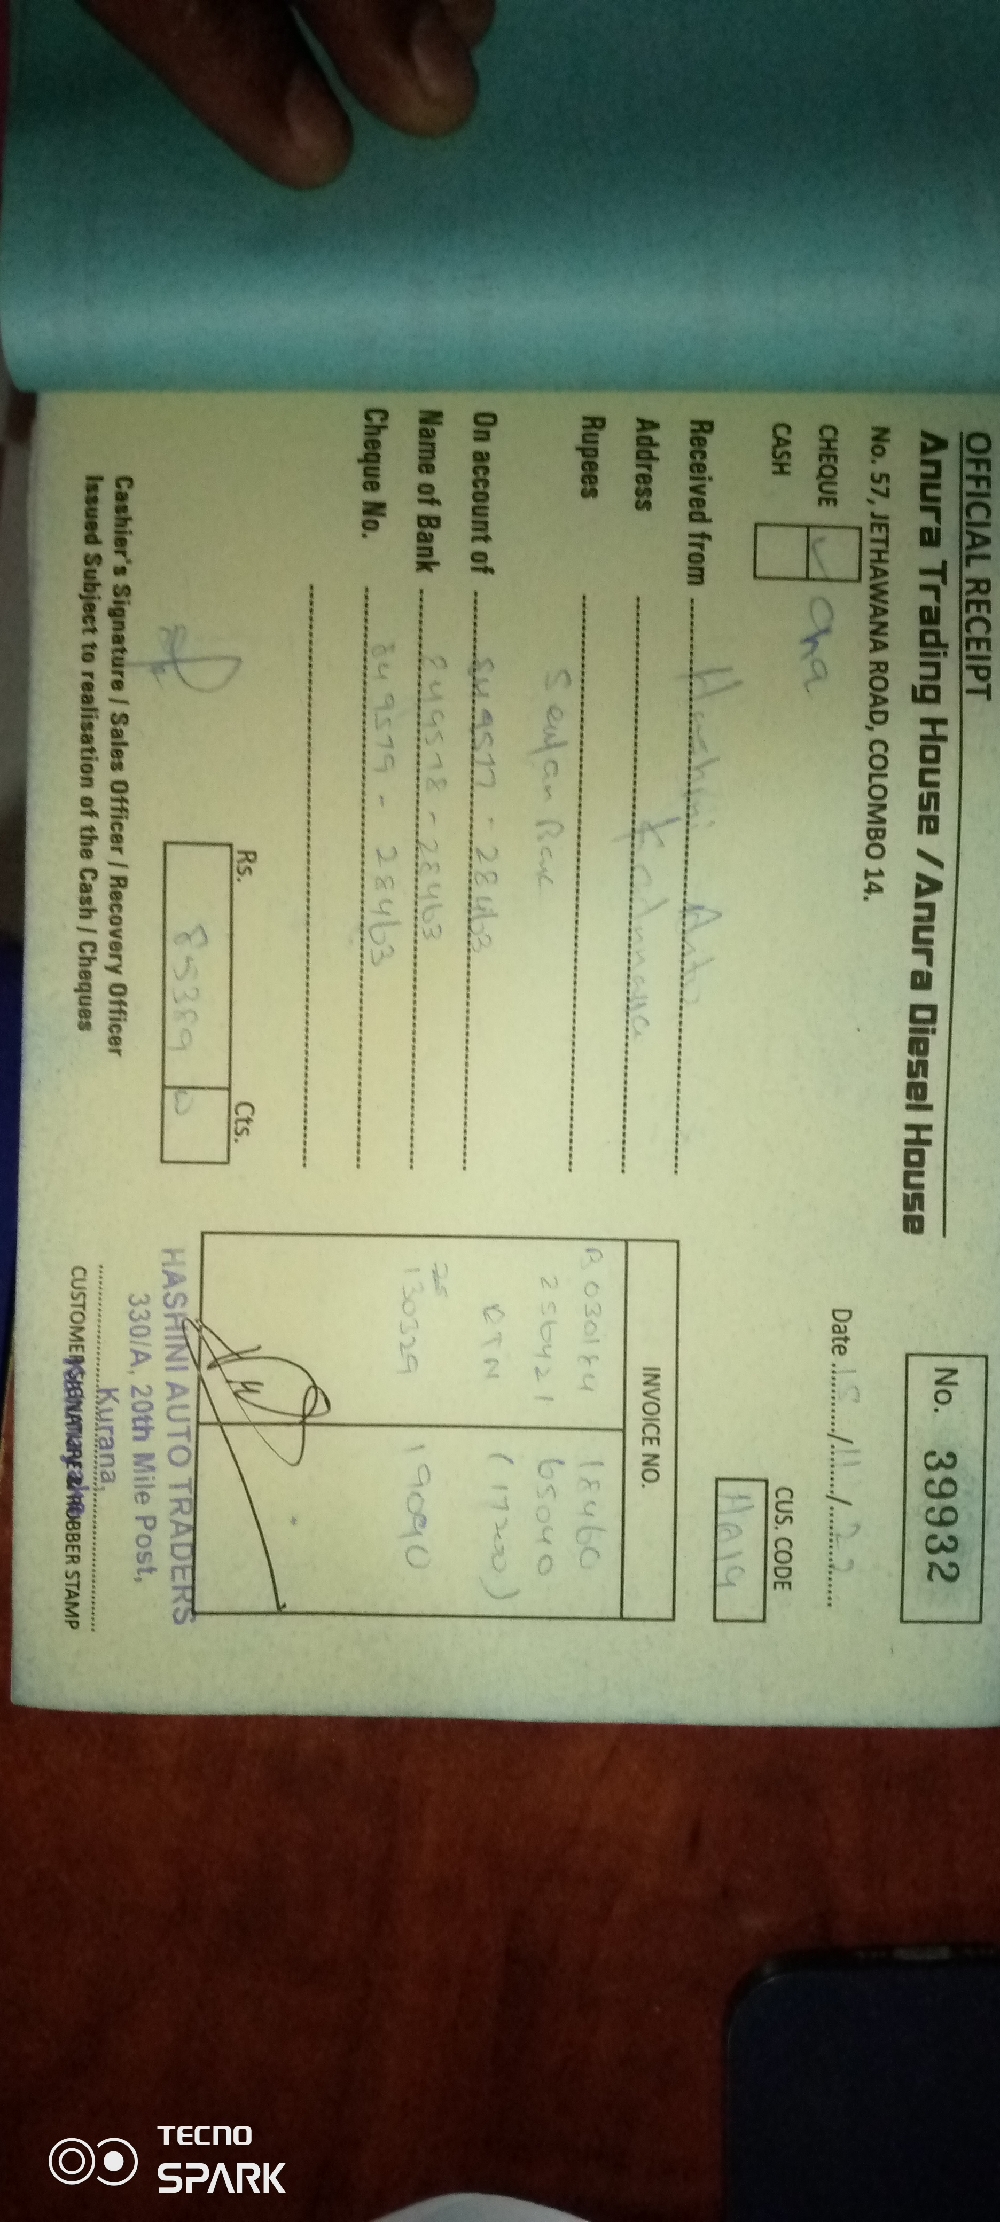 OFFICIAL RECEIPT
Anura Trading House / Anura Diesel House
No. 57, JETHAWANA ROAD, COLOMBO 14.
No. 39932
Date 15/11/22
CHEQUE
CASH
CUS. CODE
HA19
Received from Hashini Auto
Address
Rupees
Seylan Bank
On account of 849577 - 28463
Name of Bank 849578 - 28463
Cheque No. 849579 - 28463
INVOICE NO.
B030184 18460
256421 65040
RTN (17200)
130329 19090
Rs. Cts.
85389
Cashier's Signature / Sales Officer / Recovery Officer
Issued Subject to realisation of the Cash / Cheques
HASHINI AUTO TRADERS
330/A, 20th Mile Post,
Kurana,
CUSTOMER SIGNATURE & RUBBER STAMP
TECNO
SPARK